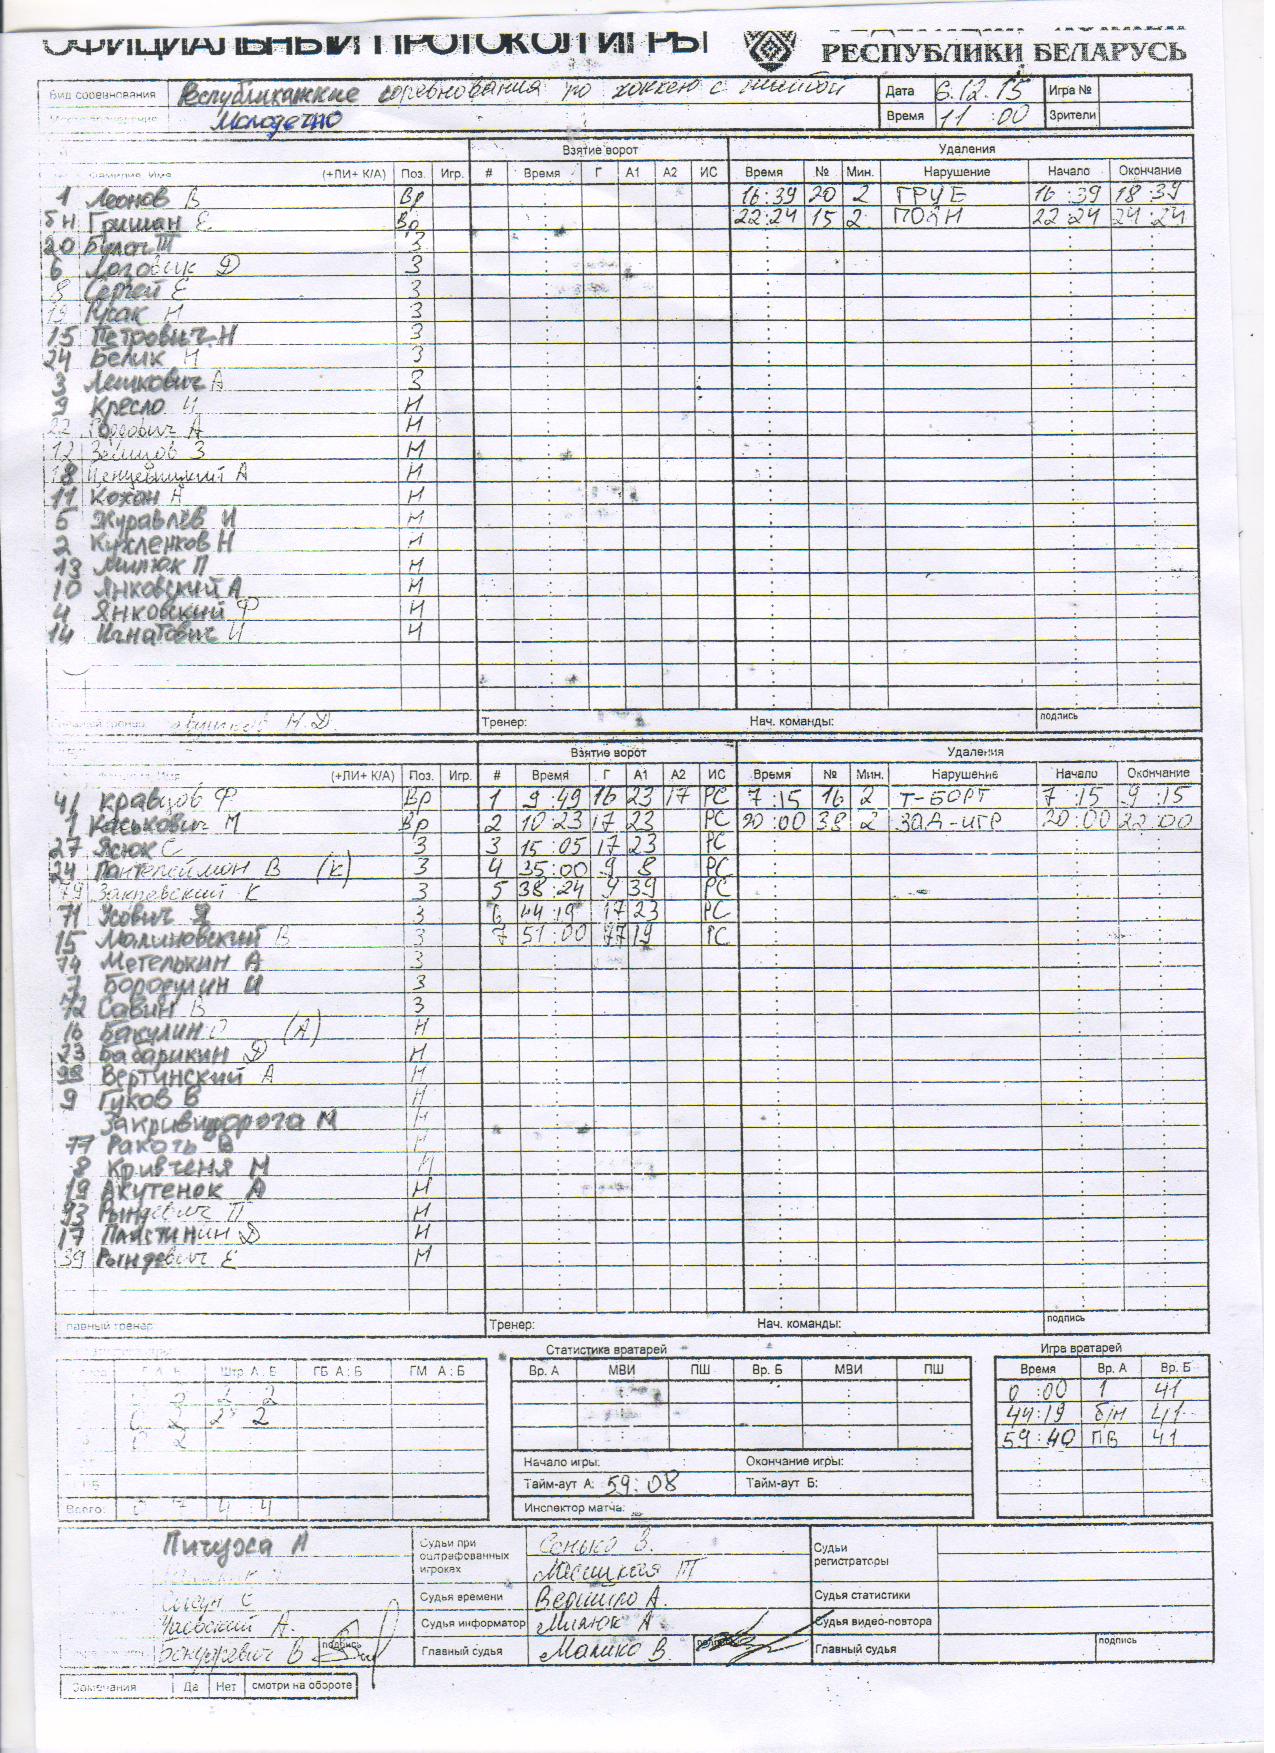 ОФИЦИАЛЬНЫЙ ПРОТОКОЛ ИГРЫ
РЕСПУБЛИКИ БЕЛАРУСЬ
Вид соревнования Республиканские соревнования по хоккею с шайбой Дата 6.12.15 Игра №
Молодечно Время 11:00 Зрители
Взятие ворот Удаления
(+ЛИ+ К/А) Поз. Игр. # Время Г А1 А2 ИС Время № Мин. Нарушение Начало Окончание
1 Леонов В Вр 16:39 20 2 ГРУБ 16:39 18:39
БН Гришан Е Вр 22:24 15 2 22:24 24:24
20 Булат З
6 Лозовик Д З
8 Сергей Е З
19 Русак Н З
15 Петрович Н З
24 Белик Н З
3 Лешкович А З
9 Кресло И Н
22 А Н
12 З Н
18 А Н
11 Кохан А Н
5 Журавлёв И Н
2 Кухленков Н Н
13 Милюк П Н
10 Янковский А Н
4 Янковский Ф Н
14 Игнатович И Н
Н.Д. Тренер: Нач. команды: подпись
Взятие ворот Удаления
(+ЛИ+ К/А) Поз. Игр. # Время Г А1 А2 ИС Время № Мин. Нарушение Начало Окончание
41 Кравцов Ф Вр 1 9:49 16 23 17 РС 7:15 16 2 Т-БОРТ 7:15 9:15
1 Каськович М Вр 2 10:23 17 23 РС 20:00 38 2 ЗАД-ИГР 20:00 22:00
27 Ясюк С З 3 15:05 17 23 РС
24 Пантелеймон В (К) З 4 35:00 9 8 РС
79 Закревский К З 5 38:24 9 39 РС
71 Усович З 6 44:19 17 23 РС
15 Малиновский В З 7 51:00 77 19 РС
74 Метелькин А З
Бородулин И З
72 Савин В З
16 Бакулин (А) Н
23 Бабарикин Д Н
98 Вертинский А Н
9 Гуков В Н
Закривидорога М Н
77 Ракоть В Н
8 Кривченя М Н
19 Акутенок А Н
93 Рындевич П Н
17 Пластинин Д Н
39 Рындевич Е Н
Главный тренер Тренер: Нач. команды: подпись
Статистика вратарей Игра вратарей
Штр А : Б ГБ А : Б ГМ А : Б Вр. А МВИ ПШ Вр. Б МВИ ПШ Время Вр. А Вр. Б
3 2 2 0:00 1 41
0 2 2 2 44:19 б/н 41
0 2 59:40 ПВ 41
Начало игры: Окончание игры:
Тайм-аут А: 59:08 Тайм-аут Б:
Всего: 0 7 4 4 Инспектор матча:
Пичужа А Судьи при оштрафованных игроках Сонько В. Судьи регистраторы
Т
С Судья времени Вершило А. Судья статистики
А. Судья информатор Милюк А Судья видео-повтора
Бондаревич В подпись Главный судья Малико В. подпись Главный судья подпись
Замечания Да Нет смотри на обороте